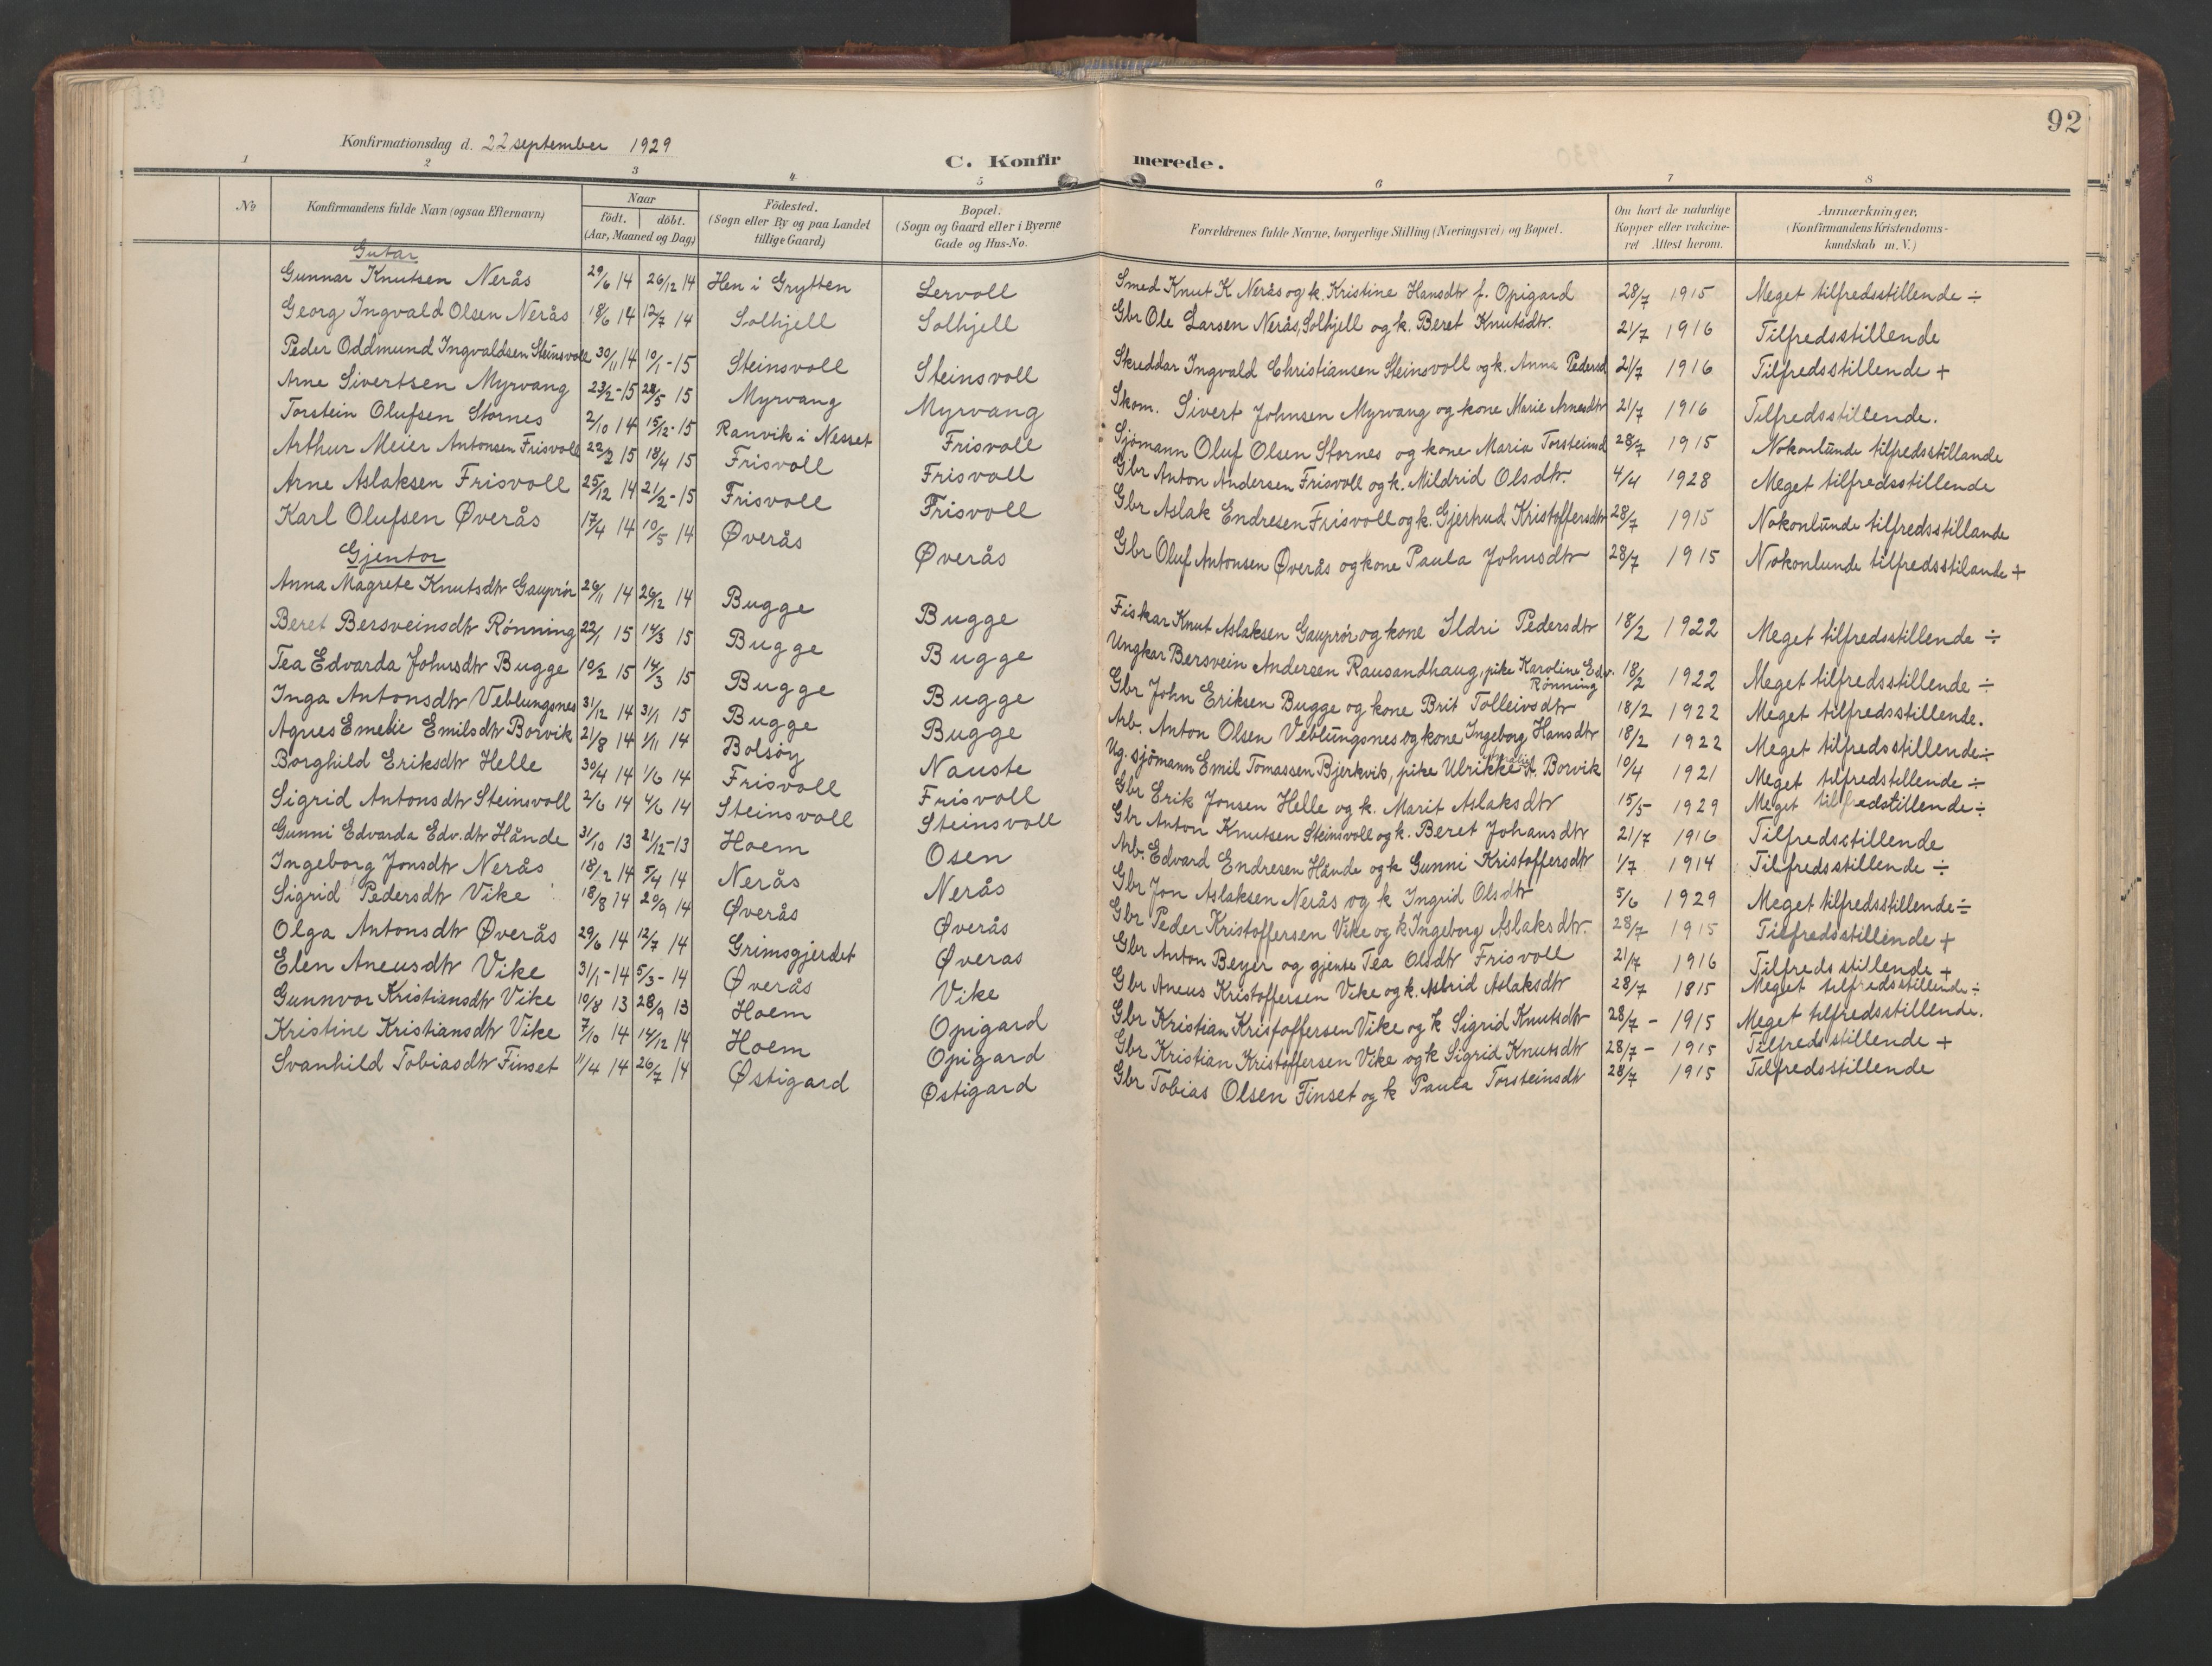 92
Konfirmationsdag d. 22 september 1929
C. Konfirmerede.
1 2 3 4 5 6 7 8
No
Konfirmandens fulde Navn (ogsaa Efternavn)
Naar
født. døbt.
(Aar, Maaned og Dag)
Födested.
(Sogn eller By og paa Landet
tillige Gaard)
Bopæl.
(Sogn og Gaard eller i Byerne
Gade og Hus-No.
Forældrenes fulde Navne, borgerlige Stilling (Næringsvei) og Bopæl.
Om havt de naturlige
Kopper eller vakcine-
ret Attest herom.
Anmærkninger,
(Konfirmandens Kristendoms-
kundskab m. V.)
Gutar
Gunnar Knutsen Nerås 29/6 14 26/12 14 Hen i Grytten Lervoll Smed Knut K Nerås og k. Kristine Hansdtr f. Opigard 28/7 1915 Meget tilfredsstillende ÷
Georg Ingvald Olsen Nerås 18/6 14 12/7 14 Solhjell Solhjell Gbr Ole Larsen Nerås, Solhjell og k. Beret Knutsdtr. 21/7 1916 Tilfredsstillende
Peder Oddmund Ingvaldsen Steinsvoll 30/11 14 10/1 - 15 Steinsvoll Steinsvoll Skreddar Ingvald Christiansen Steinsvoll og k. Anna Pedersd 21/7 1916 Tilfredsstillende +
Arne Sivertsen Myrvang 23/2 - 15 28/5 15 Myrvang Myrvang Skom. Sivert Johnsen Myrvang og kone Marie Arnesdtr 21/7 1916 Tilfredsstillende.
Torstein Olufsen Stornes 2/10 14 15/12 - 15 Ranvik i Nesset Frisvoll Sjömann Oluf Olsen Stornes og kone Maria Torsteinsd 28/7 1915 Nokonlunde tilfredsstillande
Arthur Meier Antonsen Frisvoll 22/2 15 18/4 15 Frisvoll Frisvoll Gbr Anton Andersen Frisvoll og k. Mildrid Olsdtr. 4/4 1928 Meget tilfredsstillende
Arne Aslaksen Frisvoll 25/12 14 21/2 - 15 Frisvoll Frisvoll Gbr Aslak Endresen Frisvoll og k. Gjertrud Kristoffersdtr 28/7 1915 Nokonlunde tilfredsstillande
Karl Olufsen Øverås 17/4 14 10/5 14 Øverås Øverås Gbr Oluf Antonsen Øverås og kone Paula Johnsdtr 28/7 1915 Nokonlunde tilfredsstilande +
Gjentor
Anna Magrete Knutsdtr Gauprør 26/11 14 26/12 14 Bugge Bugge Fiskar Knut Aslaksen Gauprør og kone Ildri Pedersdtr 18/2 1922 Meget tilfredsstillende ÷
Beret Bersveinsdtr Rönning 22/1 15 14/3 15 Bugge Bugge Ungkar Bersvein Andersen Rausandhaug, pike Karoline Edv. Rönning 18/2 1922 Meget tilfredsstillende ÷
Tea Edvarda Johnsdtr Bugge 10/2 15 14/3 15 Bugge Bugge Gbr John Eriksen Bugge og kone Brit Tolleivsdtr 18/2 1922 Meget tilfredsstillende.
Inga Antonsdtr Veblungsnes 31/12 14 31/1 15 Bugge Bugge Arb. Anton Olsen Veblungsnes og kone Ingeborg Hansdtr 18/2 1922 Meget tilfredsstillende ÷
Agnes Emelie Emilsdtr Borvik 21/8 14 1/11 14 Bolsöy Nauste Ug. sjömann Emil Tomassen Bjerkvik, pike Ulrikke A. Borvik 10/4 1921 Meget tilfredstillende ÷
Borghild Eriksdtr Helle 30/4 14 1/6 14 Frisvoll Frisvoll Gbr Erik Jonsen Helle og k. Marit Aslaksdtr 15/5 1929 Meget tilfredstillende ÷
Sigrid Antonsdtr Steinsvoll 2/6 14 4/6 14 Steinsvoll Steinsvoll Gbr Anton Knutsen Steinsvoll og k. Beret Johansdtr 21/7 1916 Tilfredsstillende
Gunni Edvarda Edv.dtr Hånde 31/10 13 21/12 - 13 Hoem Osen Arb. Edvard Endresen Hånde og k Gunni Kristoffersdtr 1/7 1914 Tilfredsstillende ÷
Ingeborg Jonsdtr Nerås 18/2 14 5/4 14 Nerås Nerås Gbr Jon Aslaksen Nerås og k Ingrid Olsdtr 5/6 1929 Meget tilfredsstillende ÷
Sigrid Pedersdtr Vike 18/8 14 20/9 14 Øverås Øverås Gbr Peder Kristoffersen Vike og k Ingeborg Aslaksdtr. 28/7 1915 Tilfredsstillende +
Olga Antonsdtr Øverås 29/6 14 12/7 14 Grimsgjerdet Øveras Gbr Anton Beyer og gjente Tea Olsdtr Frisvoll 21/7 1916 Tilfredsstillende +
Elen Aneusdtr Vike 31/1 - 14 5/3 - 14 Øverås Vike Gbr Aneus Kristoffersen Vike og k. Astrid Aslaksdtr 28/7 1815 Meget tilfredsstillende ÷
Gunnvor Kristiansdtr Vike 10/8 13 28/9 13 Hoem Opigard Gbr Kristian Kristoffersen Vike og k Sigrid Knutsdtr 28/7 - 1915 Meget tilfredsstillende.
Kristine Kristiansdtr Vike 7/10 14 14/12 14 Hoem Opigard Gbr Kristian Kristoffersen Vike og k Sigrid Knutsdtr 28/7 - 1915 Tilfredsstillende +
Svanhild Tobiasdtr Finset 11/4 14 26/7 14 Østigard Østigard Gbr Tobias Olsen Finset og k Paula Torsteinsdtr 28/7 1915 Tilfredsstillende